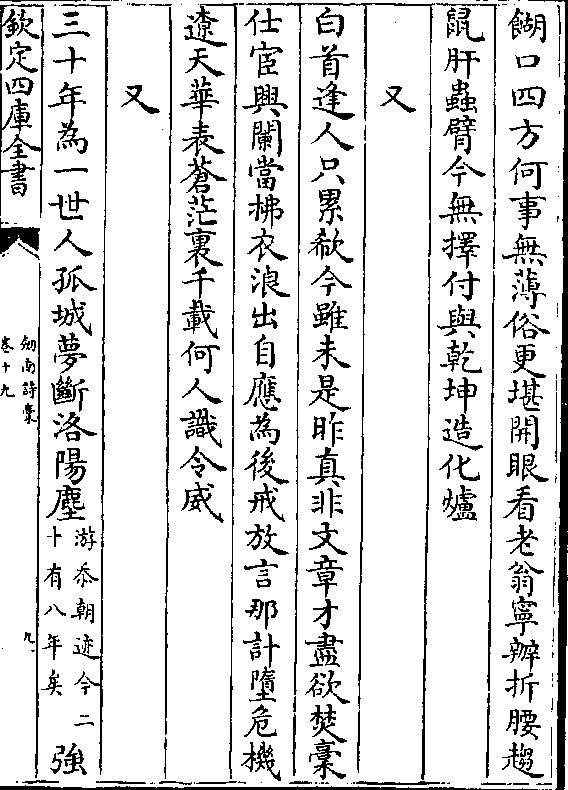 餬口四方何事無薄俗更堪開眼看老翁寧辦折腰趨
鼠肝蟲臂今無擇付與乾坤造化爐
又
白首逢人只累欷今雖未是昨真非文章才盡欲焚稾
仕宦興闌當拂衣浪出自應為後戒放言那計墮危機
遼天華表蒼茫裏千載何人識令威
又
三十年為一世人孤城夢斷洛陽塵游忝朝迹今二十有八年矣強
欽定四庫全書
劎南詩稾
卷十九
九